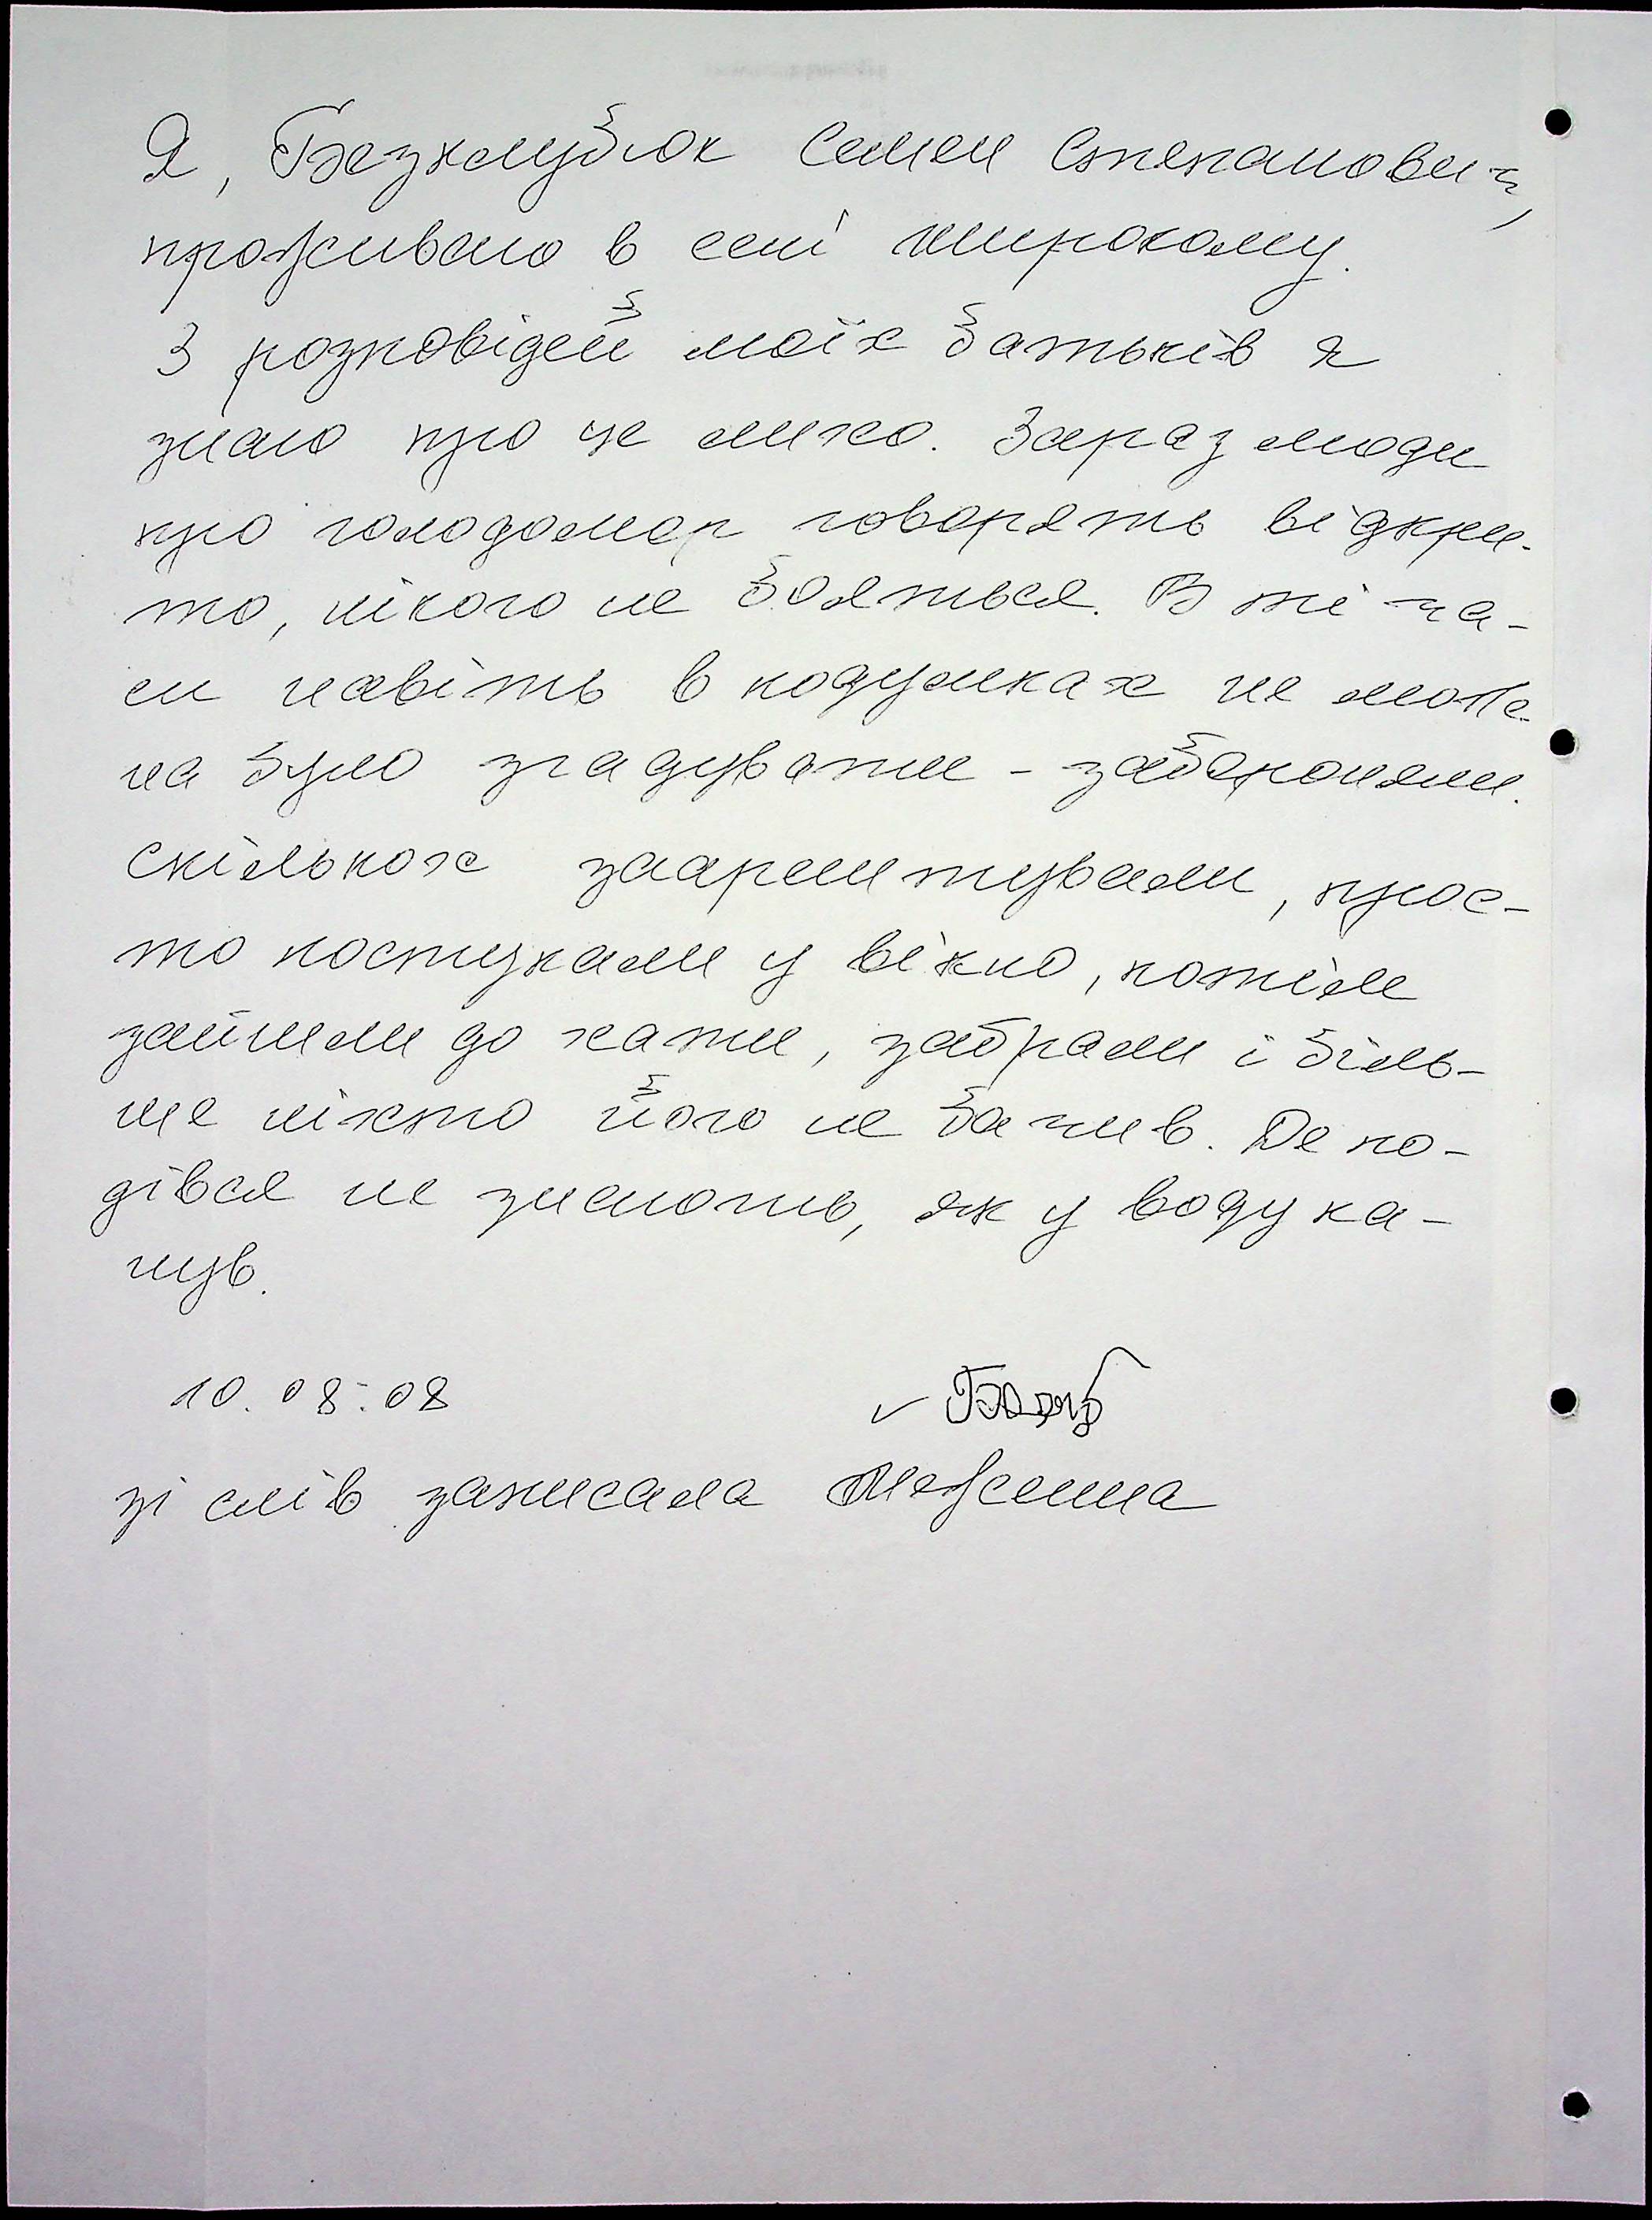 Я, Безхлюбюк Семен Степанович,
проживаю в селі Широкому.
З розповідей моїх батьків я
знаю про це лихо. Зараз люди
про голодомор говорять відкри-
то, нікого не бояться. В ті ча-
си навіть в подумках не мож-
на було згадувати - забороняли.
Скількох заарештували, прос-
то постукали у вікно, потім
зайшли до хати, забрали і біль-
ше ніхто його не бачив. Де по-
дівся не знають, як у воду ка-
нув.
10.08.08
зі слів записала